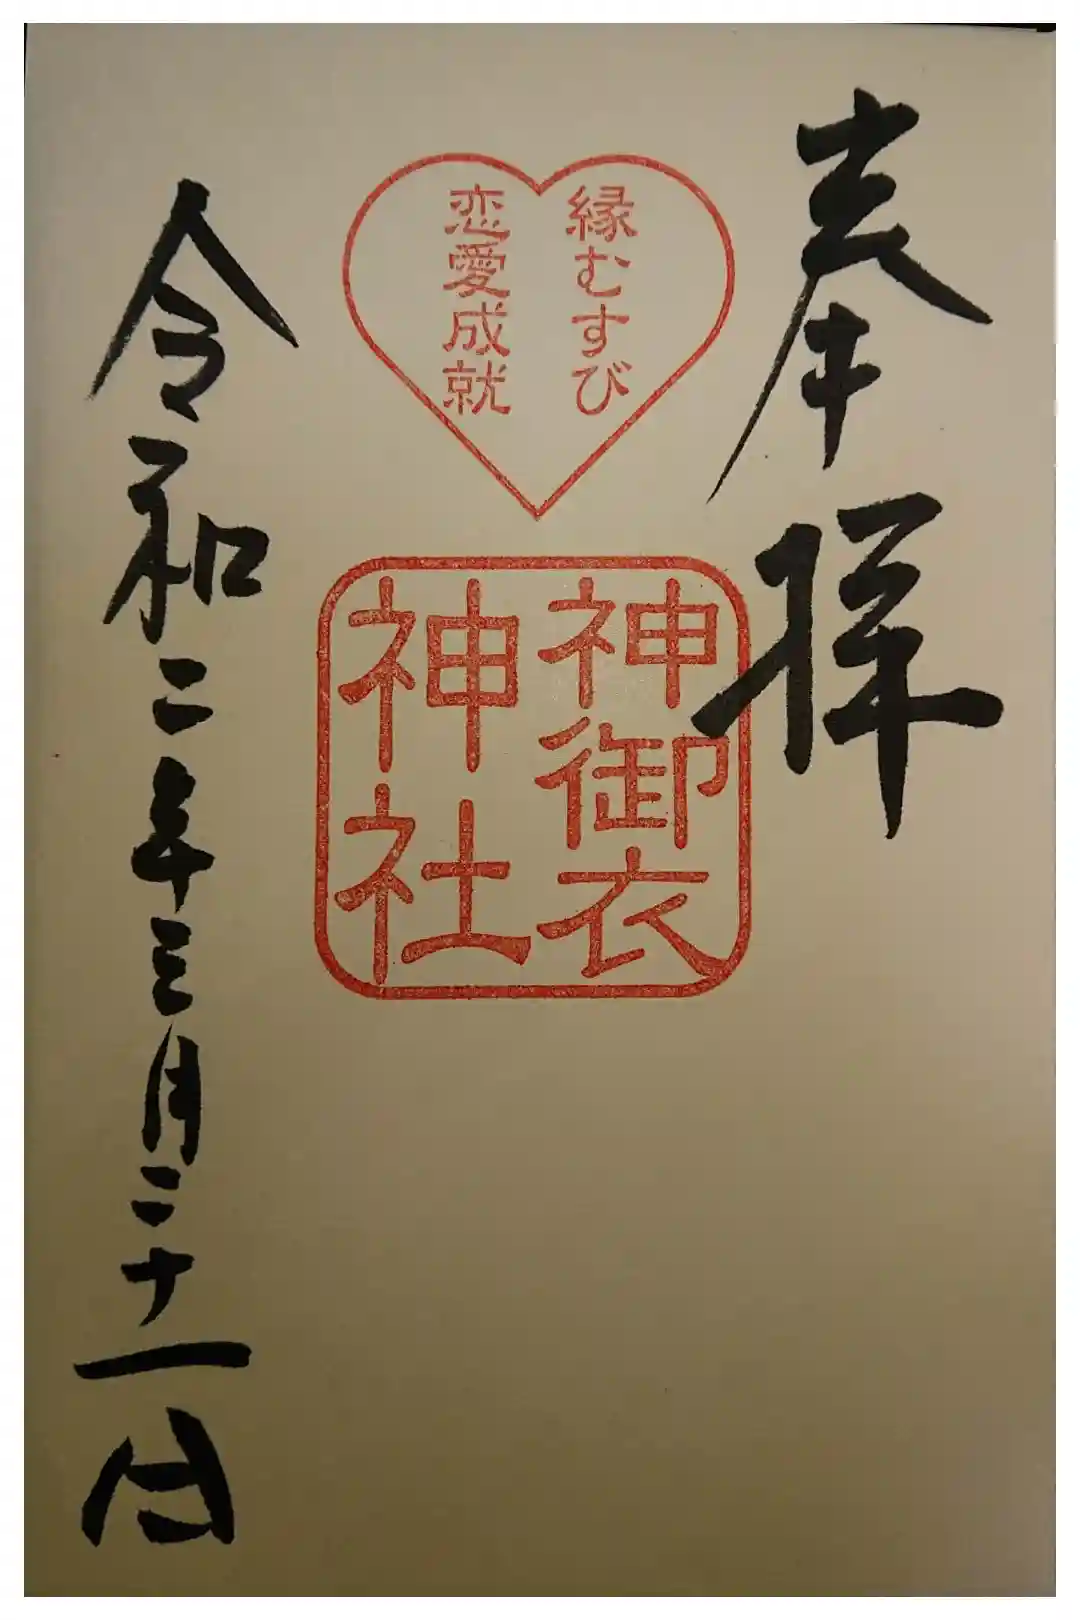 奉拝
縁むすび
恋愛成就
神御衣
神社
令和二年三月二十一日